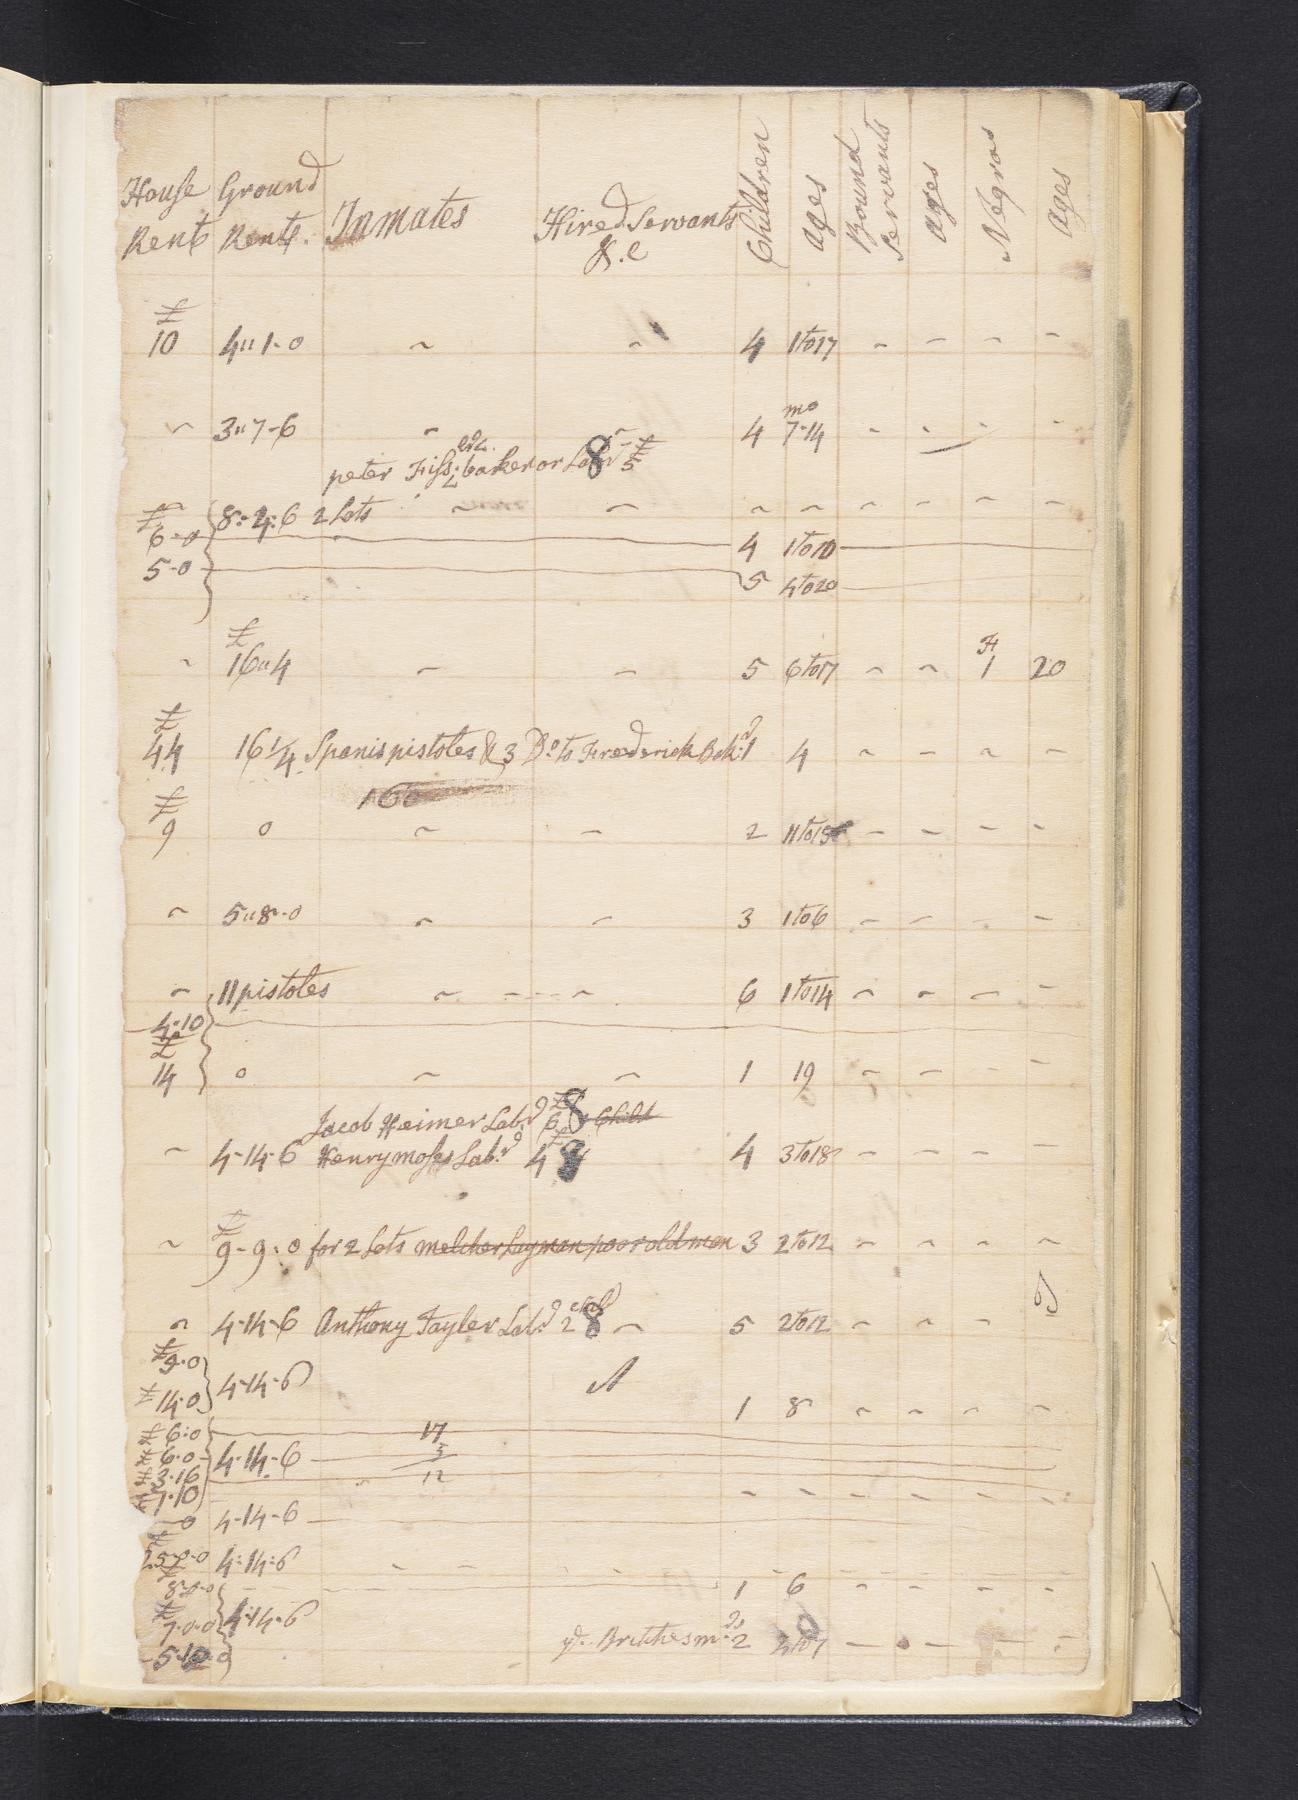 House Rent | Ground Rent. | Inmates | Hired Servants &.c | Children | ages | Bound Servants | ages | Negros | ages
£ 10 | 4"1-0 | ~ | ~ | 4 | 1 to 17 | ~ | ~ | ~ | ~
~ | 3"7-6 | ~ | ~ | 4 | mo 7-14 | ~ | ~ | ~ | ~
peter Fiss: baker or Labr 8 £ 5
~ | 8:2:6 2 Lots | ~ | ~ | ~ | ~ | ~ | ~ | ~ | ~
£ 6-0 | 4 | 1 to 10
5-0 | 5 | 4 to 20
~ | £ 16"4 | ~ | ~ | 5 | 6 to 17 | ~ | ~ | F 1 | 20
£ 44 | 16 1/4 Spanis pistoles & 3 Do to Frederick Bek: | 1 | 4 | ~ | ~ | ~ | ~
160
£ 9 | 0 | ~ | ~ | 2 | 11 to 15 | ~ | ~ | ~ | ~
~ | 5"8-0 | ~ | ~ | 3 | 1 to 6 | ~ | ~ | ~ | ~
~ | 11 pistoles | ~ | ~ | 6 | 1 to 14 | ~ | ~ | ~ | ~
4-10
£ 14 | 0 | ~ | ~ | 1 | 19 | ~ | ~ | ~ | ~
Jacob Heimer Labr £ 6 8 Child
~ | 4-14-6 | Henry moses Labr £ 4 8 | 4 | 3 to 18 | ~ | ~ | ~ | ~
~ | £ 9-9:0 for 2 Lots melcher Layman poor old man | 3 | 2 to 12 | ~ | ~ | ~ | ~
~ | 4-14-6 | Anthony Tayler Labr 2 child 8 ~ | 5 | 2 to 12 | ~ | ~ | ~
£ 9-0
£ 14-0 | 4-14-6 | 1 | 8 | ~ | ~ | ~ | ~
£ 6:0 | 17
£ 6-0 | 4-14-6 | 5
£ 3-16 | 12
£ 7-10 | ~ | ~ | ~ | ~ | ~ | ~
0 | 4-14-6
25-0-0 | 4:14:6
£ 8-0-0 | 1 | 6 | ~ | ~ | ~ | ~
£ 7-0-0 | 4-14-6
5-10-0 | Britches mr | 2 | 2 to 7